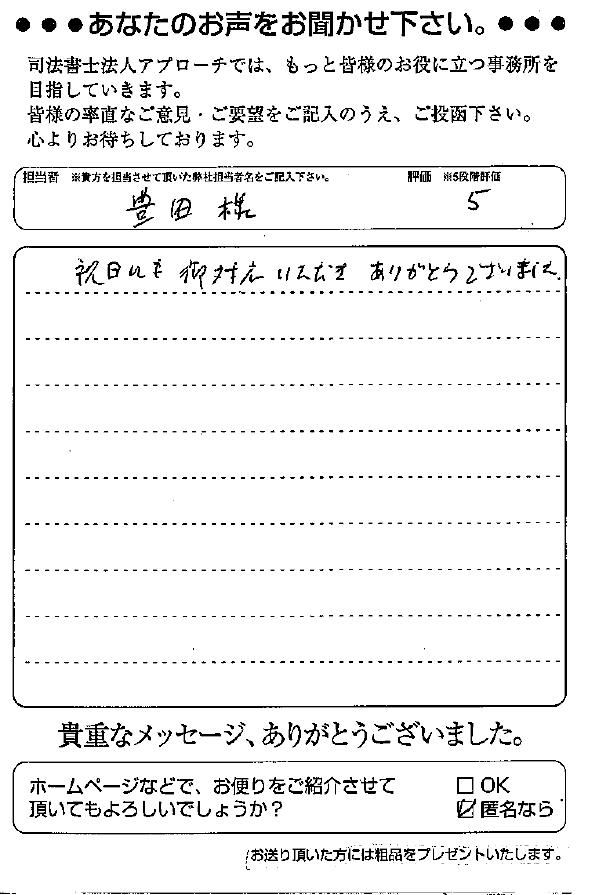 ●●●あなたのお声をお聞かせ下さい。●●●
司法書士法人アプローチでは、もっと皆様のお役に立つ事務所を
目指していきます。
皆様の率直なご意見・ご要望をご記入のうえ、ご投函下さい。
心よりお待ちしております。
担当者 ※貴方を担当させて頂いた弊社担当者名をご記入下さい。 評価 ※5段階評価
豊田 様 5
祝日にも 御対応 いただき ありがとうございました.
貴重なメッセージ、ありがとうございました。
ホームページなどで、お便りをご紹介させて □ OK
頂いてもよろしいでしょうか? ☑ 匿名なら
お送り頂いた方には粗品をプレゼントいたします。